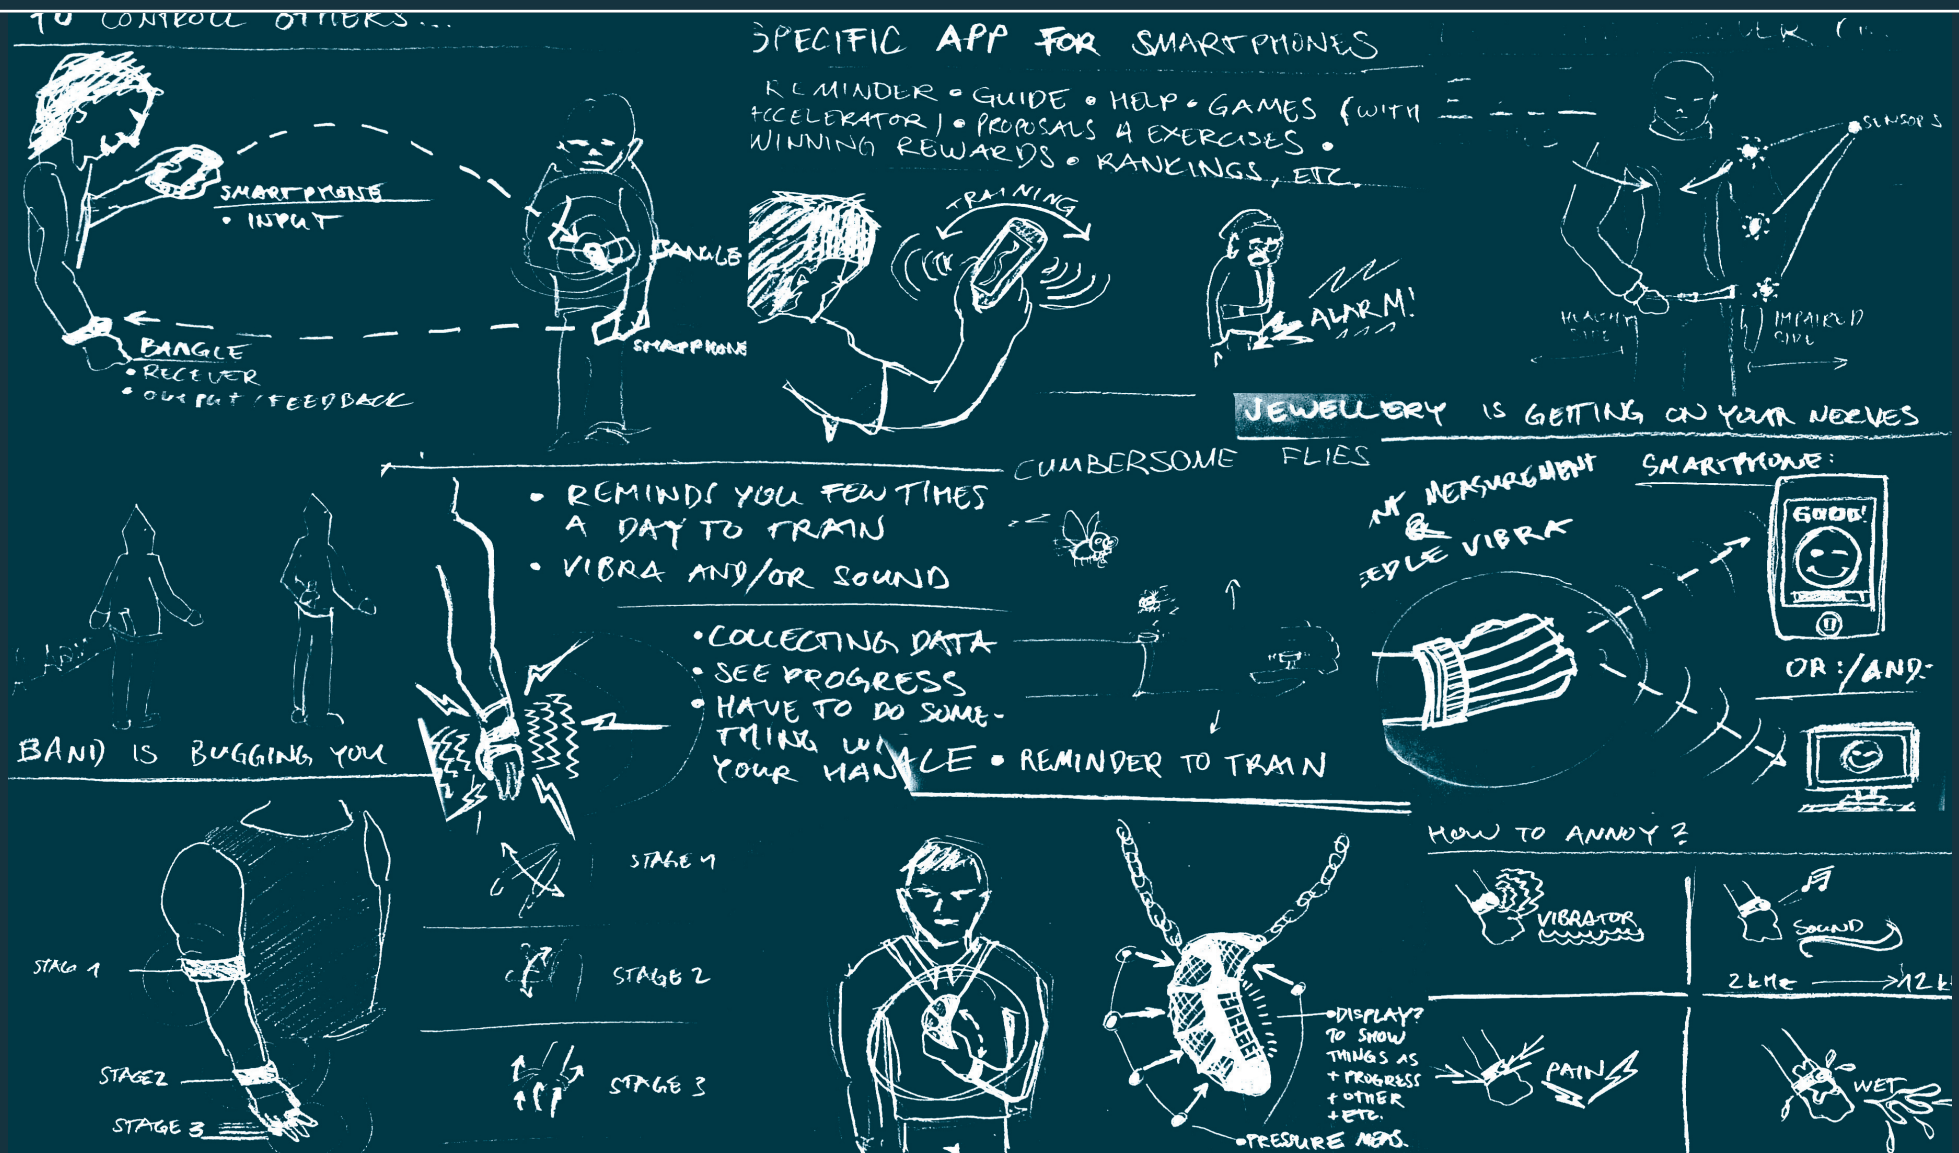 TO CONTROLL OTHERS...
SMARTPHONE
• INPUT
BANGLE
SMARPPHONE
BANGLE
• RECEVER
• OUTPUT / FEEDBACK
SPECIFIC APP FOR SMARTPHONES
REMINDER • GUIDE • HELP • GAMES (WITH
ACCELERATOR) • PROPOSALS 4 EXERCISES •
WINNING REWARDS • RANKINGS, ETC.
TRAINING
ALARM!
SENSORS
HEALTHY
SIDE
IMPAIRED
SIDE
JEWELLERY IS GETTING ON YOUR NERVES
CUMBERSOME FLIES
• REMINDS YOU FEW TIMES
A DAY TO TRAIN
• VIBRA AND/OR SOUND
• COLLECTING DATA
• SEE PROGRESS
• HAVE TO DO SOME-
THING
YOUR
• REMINDER TO TRAIN
MEASUREMENT
&
VIBRA
SMARTPHONE:
GOOD!
OR:/AND:
BAND IS BUGGING YOU
STAG 1
STAGE2
STAGE 3
STAGE 1
STAGE 2
STAGE 3
• DISPLAY?
TO SHOW
THINGS AS
+ PROGRESS
+ OTHER
+ ETC.
• PRESSURE MEAS.
HOW TO ANNOY?
VIBRATOR
SOUND
2 kHz 12 k
PAIN
WET